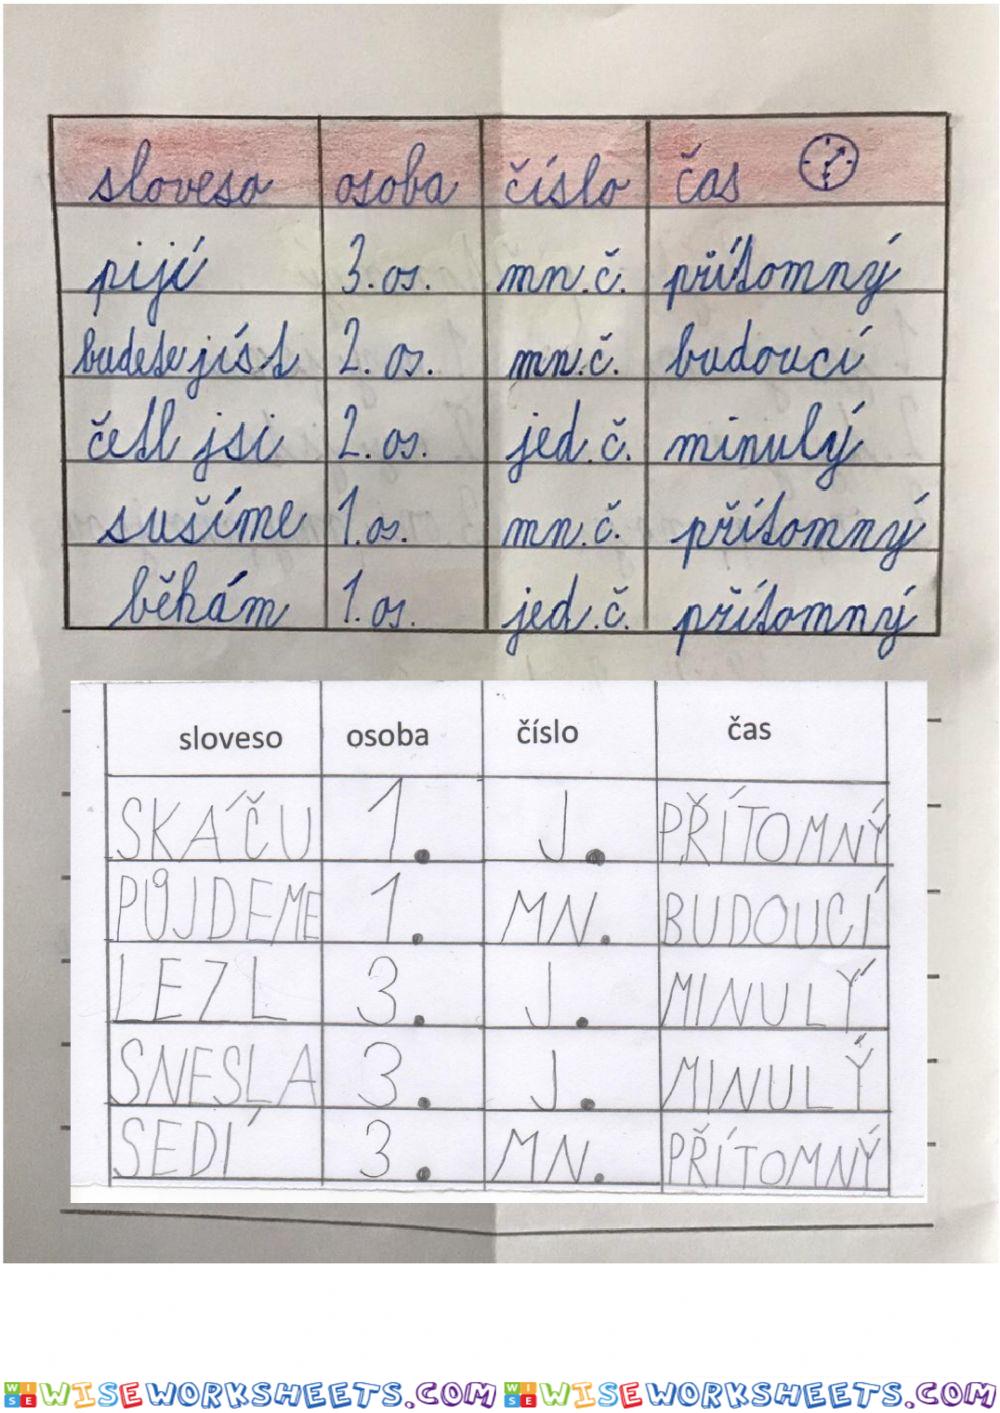 sloveso osoba číslo čas
pijí 3. os. mn. č. přítomný
budete jíst 2. os. mn. č. budoucí
četl jsi 2. os. jed. č. minulý
sušíme 1. os. mn. č. přítomný
běhám 1. os. jed. č. přítomný
sloveso osoba číslo čas
SKÁČU 1. J. PŘÍTOMNÝ
PŮJDEME 1. MN. BUDOUCÍ
LEZL 3. J. MINULÝ
SNESLA 3. J. MINULÝ
SEDÍ 3. MN. PŘÍTOMNÝ
WISE WISEWORKSHEETS.COM WISE WISEWORKSHEETS.COM